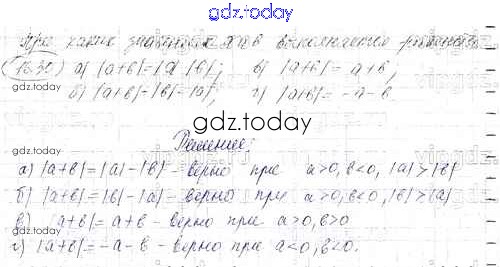 gdz.today
При каких значениях a и b выполняется равенство
15.35) а) |a+b|=|a|-|b|; в) |a+b|=a+b,
б) |a+b|=|b|-|a|; г) |a+b|=-a-b.
gdz.today
Решение:
а) |a+b|=|a|-|b| - верно при a>0, b<0, |a|>|b|
б) |a+b|=|b|-|a| - верно при a>0, b<0, |b|>|a|
в) |a+b|=a+b - верно при a>0, b>0
г) |a+b|=-a-b - верно при a<0, b<0.
gdz.today